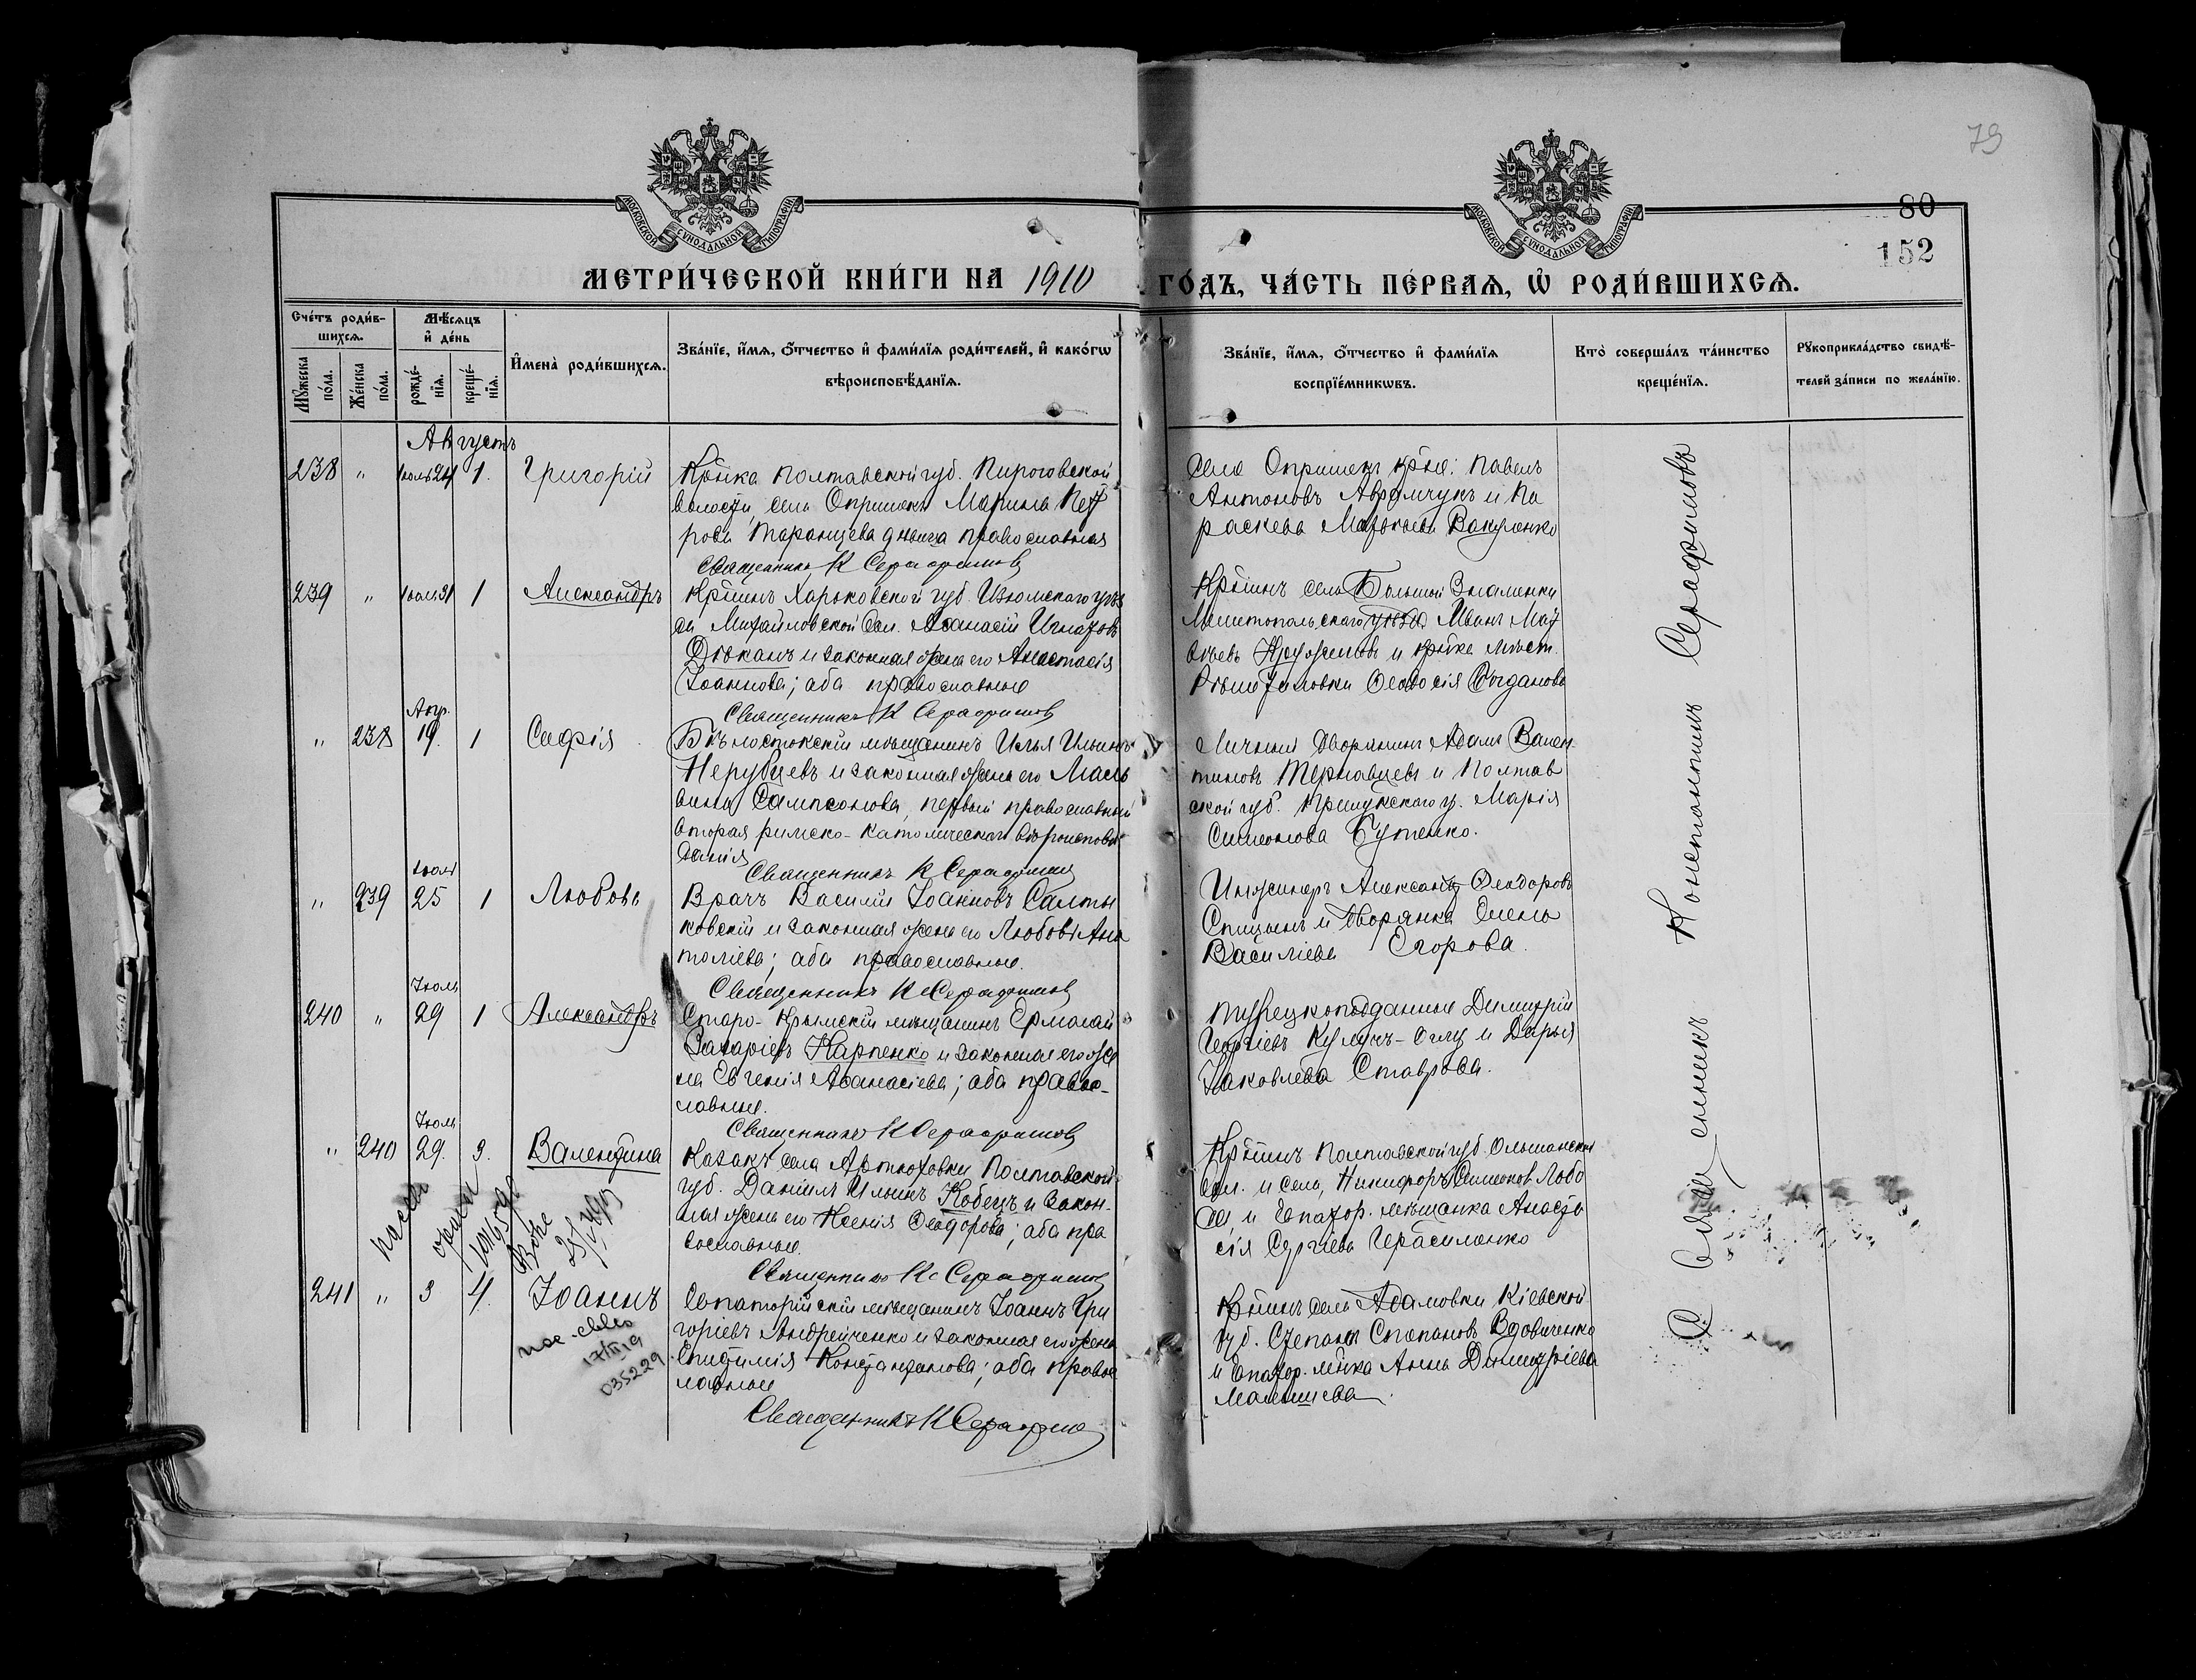 79
80
152
МОСКОВСКОЙ СѴНОДАЛЬНОЙ ТИПОГРАФІИ
МОСКОВСКОЙ СѴНОДАЛЬНОЙ ТИПОГРАФІИ
МЕТРИ́ЧЕСКОЙ КНИ́ГИ НА 1910 ГО́ДЪ, ЧА́СТЬ ПЕ́РВАѦ, Ѽ РОДИ́ВШИХСѦ.
Сче́тъ роди́в-
шихсѧ.
Мꙋ́жеска по́ла.
Же́нска по́ла.
Мѣ́сѧцъ
и҆ де́нь
рожде́-
нїѧ.
креще́-
нїѧ.
И҆мена̀ роди́вшихсѧ.
Зва́нїе, и҆́мѧ, ѻ҆́тчество и҆ фами́лїѧ роди́телей, и҆ како́гѡ
вѣроисповѣ́данїѧ.
Зва́нїе, и҆́мѧ, ѻ҆́тчество и҆ фами́лїѧ
воспрїе́мникѡвъ.
Кто̀ соверша́лъ та́инство
креще́нїѧ.
Рꙋкоприкла́дство свидѣ́-
телей за́писи по жела́нїю.
Августъ
238 " Іюль 24 1. Григорій
Кр̃нка Полтавской губ. Пироговской
волости, села Опришекъ Марина Пет
рова Таранцева дѣвица православная
Священникъ К Серафимовъ
села Опришекъ кр̃не: Павелъ
Антоновъ Аврамчукъ и Па
раскева Маркова Вакуленко
239 " Іюль 31 1 Александръ
Кр̃тинъ Харьковской губ. Изюмскаго уѣз
Михайловской вол. Аѳанасій Игнатовъ
и законная жена его Анастасія
Іоаннова; оба православные
Священникъ К Серафимовъ
Кр̃тинъ села Большой Знаменки
Мелитопольскаго уѣзда Иванъ Мат
вѣевъ и кр̃нка мѣст.
Ѳеодосія Богданова
" 238 Апр. 19. 1 Софія
Бѣлостокскій мѣщанинъ Илья Ильинъ
Нерубцевъ и законная жена его Маль
вина Сампсонова, первый православный
вторая римско-католическаго вѣроисповѣ
данія
Священникъ К Серафимовъ
Личный дворянинъ Адамъ Вален-
тиновъ Тернавцевъ и Полтав
ской губ. Прилукскаго у. Марія
Симеонова Бутенко.
" 239 Іюль 25 1 Любовь
Врачъ Василій Іоанновъ Салты
ковскій и законная жена его Любовь Ана
толіева; оба православные.
Священникъ К Серафимовъ
Инженеръ Александръ Ѳеодоровъ
Спицынъ и дворянка Елена
Василіева Егорова.
240 " Іюль 29 1 Александръ
Старо-Крымскій мѣщанинъ Ермолай
Захаріевъ Карпенко и законная его же
на Евгенія Аѳанасіева; оба право-
славные.
Священникъ К Серафимовъ
Турецкоподданные Димитрій
Георгіевъ Кулунъ-Оглу и Дарья
Іаковлева Ставрова.
" 240 Іюль 29. 3. Валентина
Казакъ села Артюховки Полтавской
губ. Даніилъ Ильинъ Кобецъ и закон-
ная жена его Ксенія Ѳеодорова; оба пра
вославные.
Священникъ К Серафимовъ
Кр̃тинъ Полтавской губ. Ольшанской
вол. и села, Никифоръ Симеоновъ Лобо
да, и Евпатор. мѣщанка Анаста
сія Сергіева Герасименко
241 " 3 4. Іоаннъ
Евпаторійскій мѣщанинъ Іоаннъ Гри
горіевъ Андрейченко и законная его жена
Евфимія Константинова; оба правос
лавные
Священникъ К Серафимовъ
Кр̃тинъ села Адамовки Кіевской
губ. Степанъ Степановъ Вдовиченко
и Евпатор. мѣщ̃ка Анна Димитріева
Малышева.
035229
Священникъ Константинъ Серафимовъ